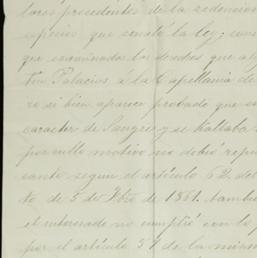 lares procedentes de la redencion
especies que señaló la ley; cons
que examinados los derechos que al
tin Palacios á la Capellanía de
ro si bien aparece probado que su
caracter de Sangre y se hallaba
por cullo motivo no debió repu
cante segun el artículo 62 del
to de 5 de Fbro de 1861. tambie
el interesado no cumplió con lo p
por el artículo 51 de la misma